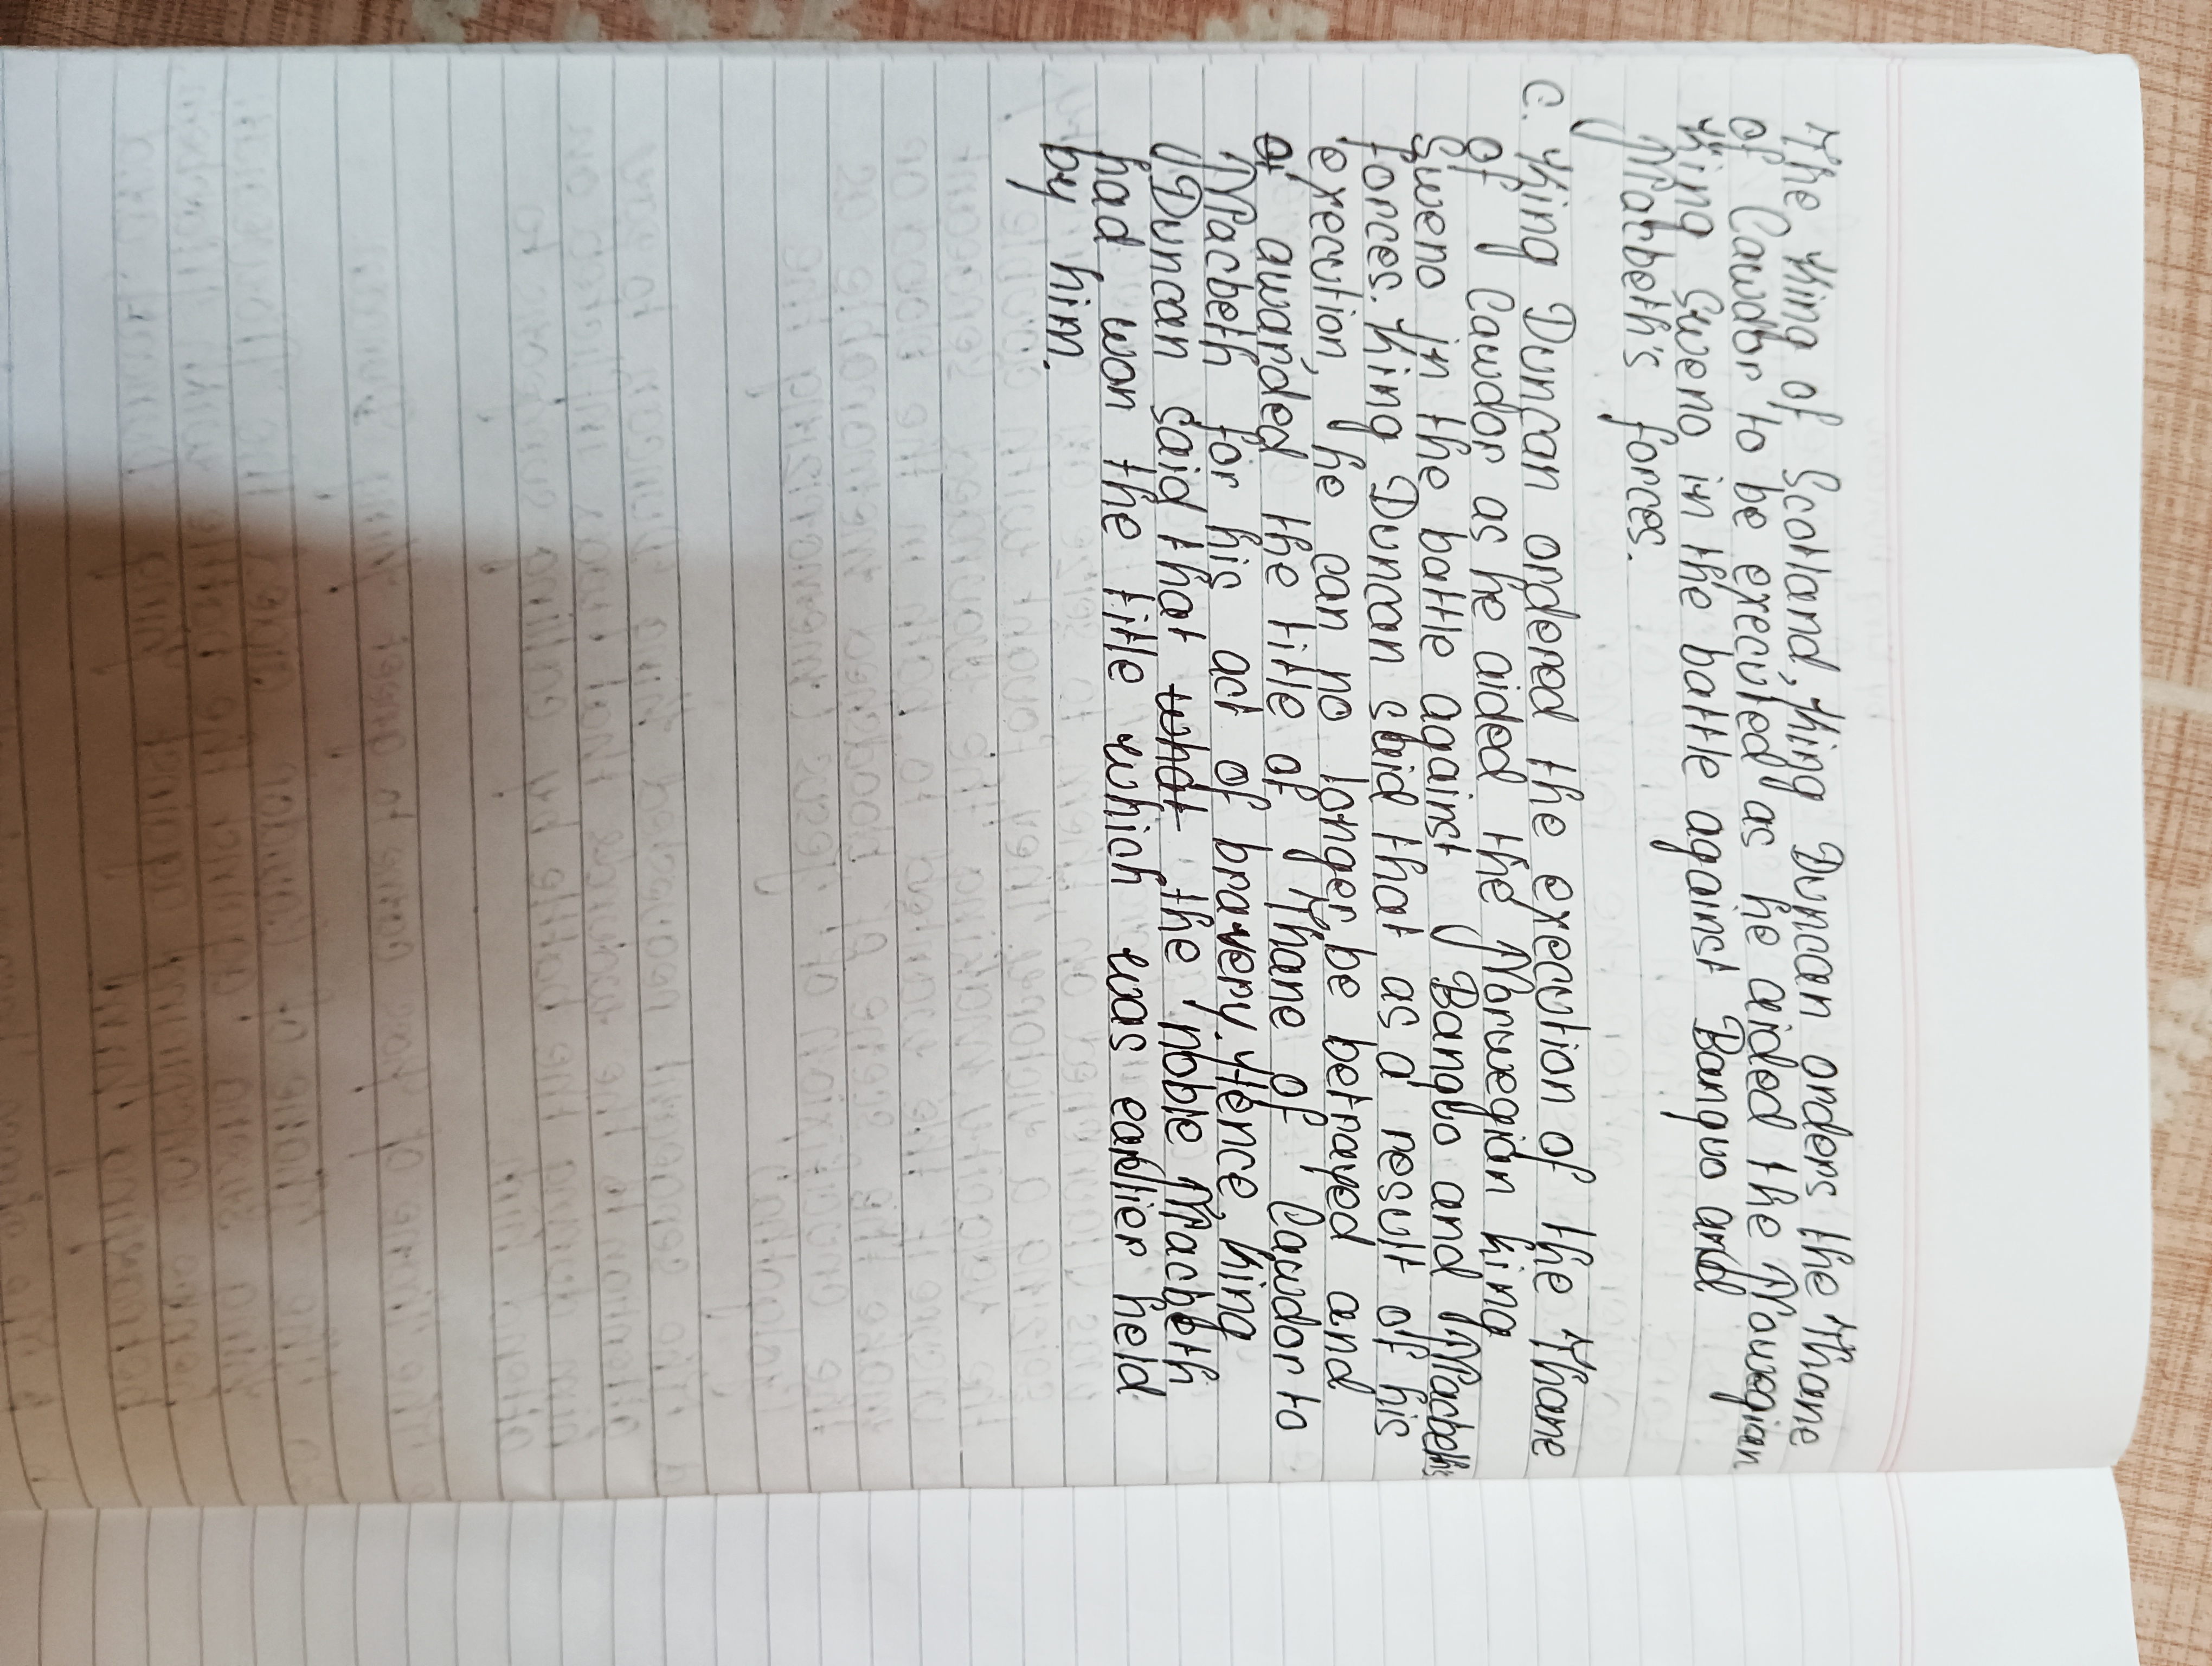 The King of Scotland, King Duncan orders the Thane
of Cawdor to be executed as he aided the Norwegian
King Sweno in the battle against Banquo and
Macbeth's forces.
C. King Duncan ordered the execution of the Thane
of Cawdor as he aided the Norwegian king
Sweno in the battle against Banquo and Macbeth's
forces. King Duncan said that as a result of his
execution, he can no longer be betrayed and
awarded the title of Thane of Cawdor to
Macbeth for his act of bravery. Hence, King
Duncan said that what the noble Macbeth
had won the title which was earlier held
by him.